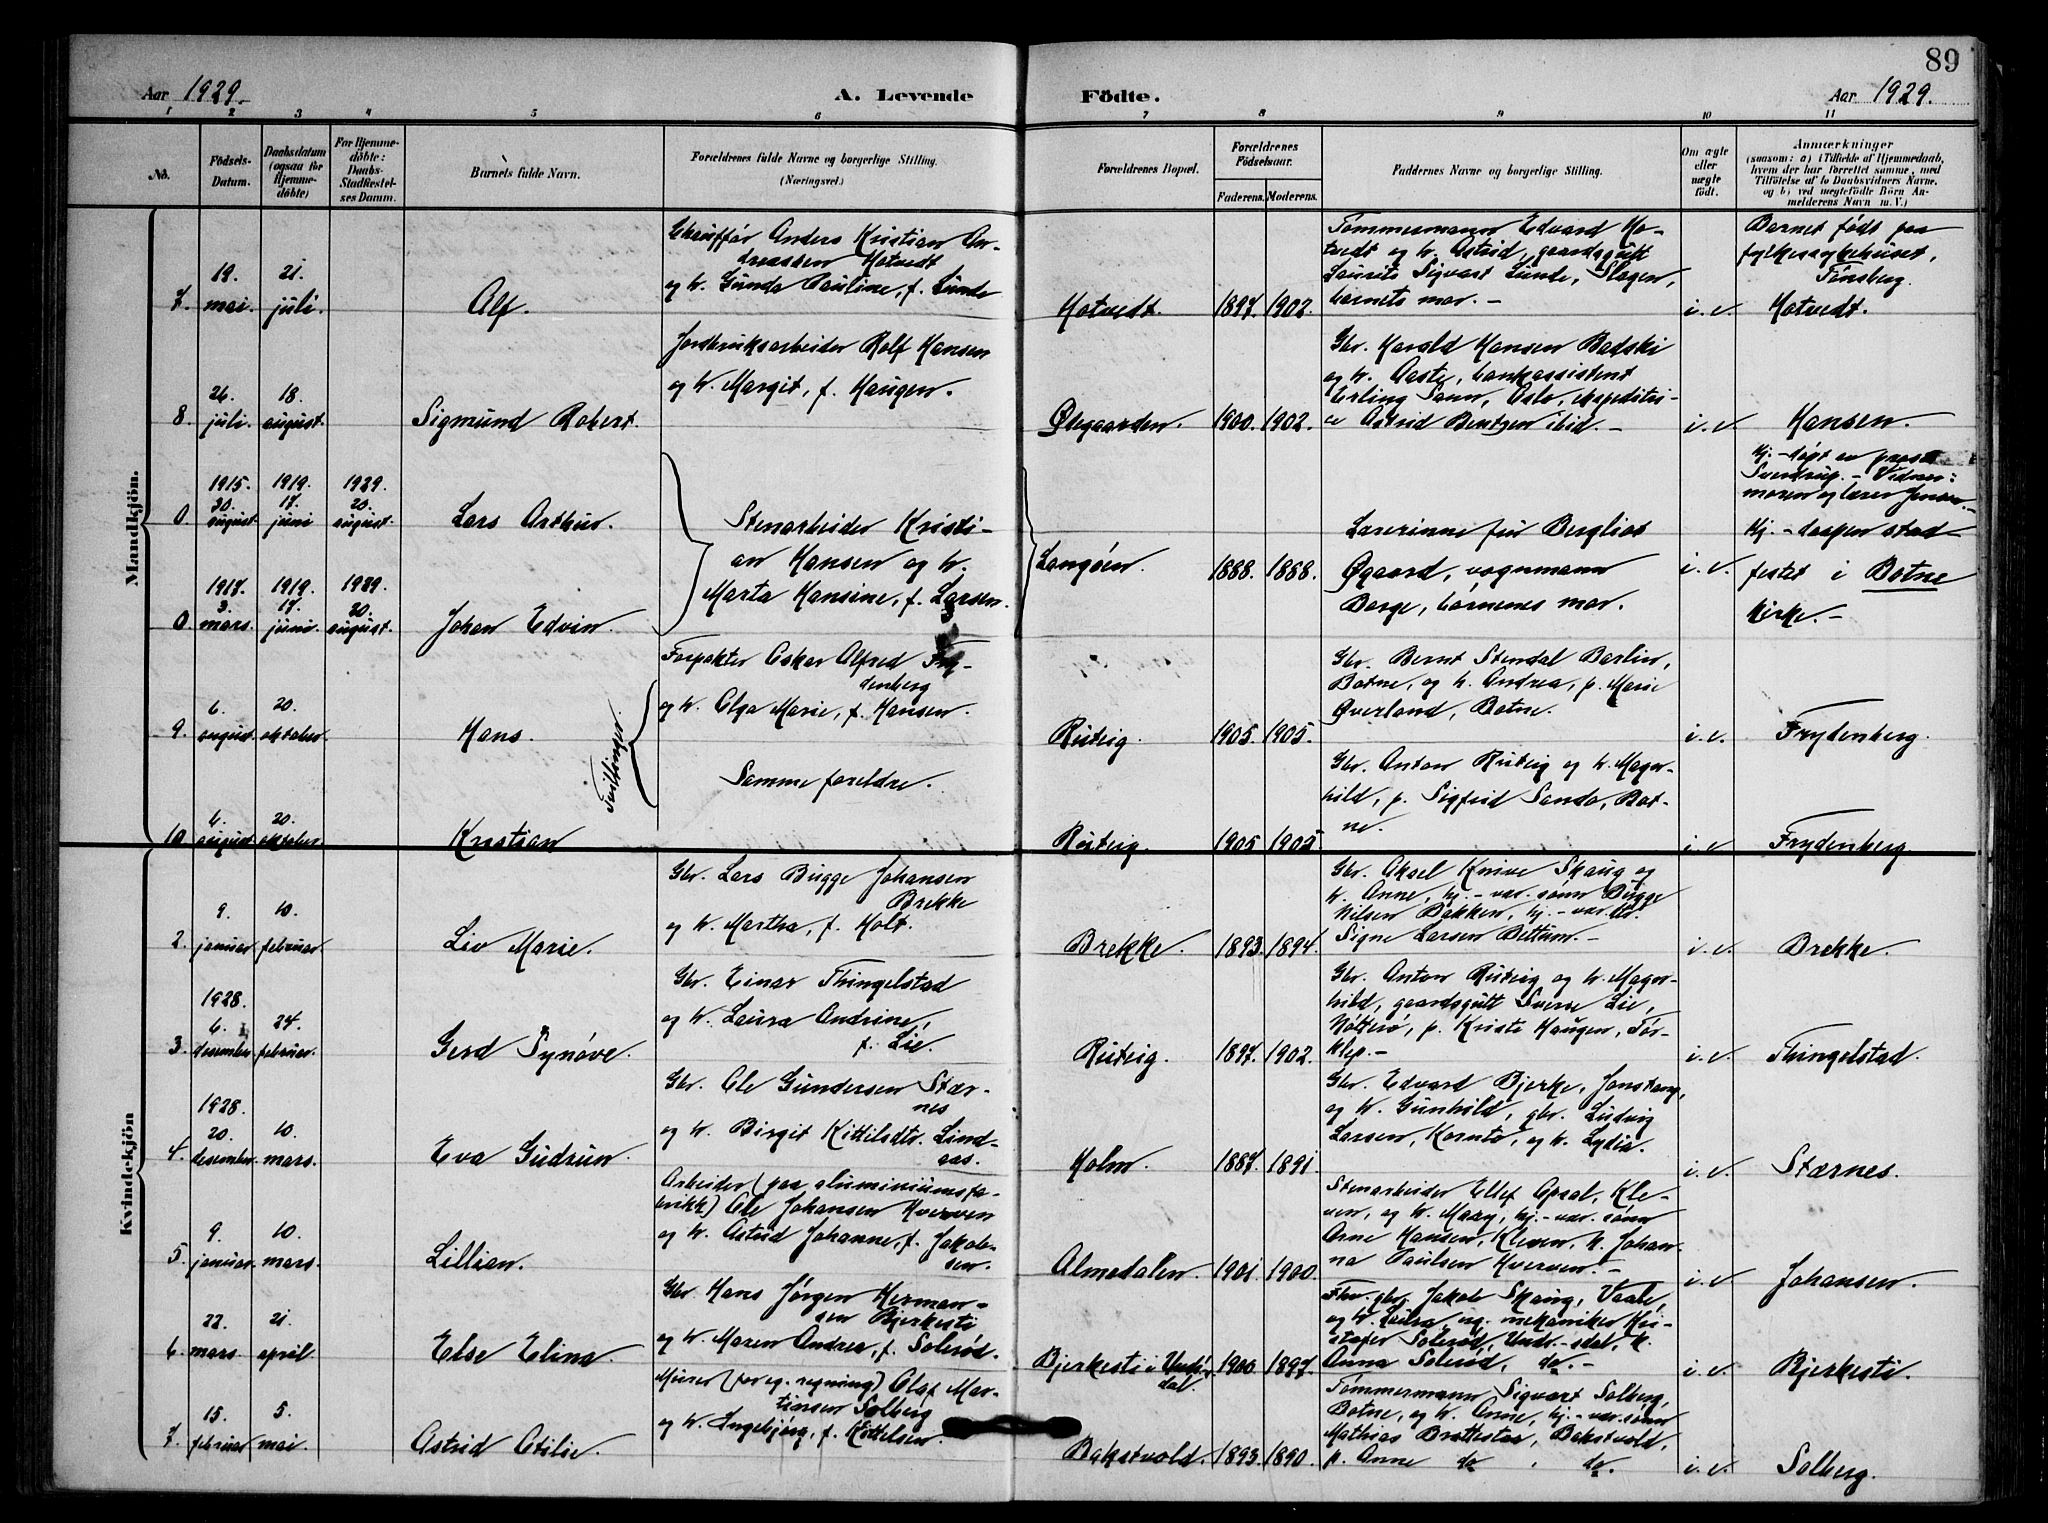 89
Aar 1929.
A. Levende
Födte.
Aar 1929.
1 2 3 4 5 6 7 8 9 10 11
No.
Födsels-
Datum.
Daabsdatum
(ogsaa for
Hjemme-
döbte)
For Hjemme-
döbte:
Daabs-
Stadfæstel-
ses Datum.
Barnets fulde Navn.
Forældrenes fulde Navne og borgerlige Stilling.
(Næringsvei.)
Forældrenes Bopæl.
Forældrenes
Födselsaar.
Faderens. Moderens.
Faddernes Navne og borgerlige Stilling.
Om ægte
eller
uægte
födt.
Anmærkninger
(saasom: a) i Tilfælde af Hjemmedaab,
hvem der har forrettet samme, med
Tilföielse af to Daabsvidners Navne,
og b) ved uægtefödte Börn An-
melderens Navn m. V.)
Mandkjön.
7.
19.
mai.
21.
juli.
Alf.
Chauffør Anders Kristian An-
dreassen Hotvedt
og h. Gunda Pauline, f. Lunde
Hotvedt.
1897. 1902.
Tømmermann Edvard Ho-
tvedt og h. Astrid, gaardsgutt
Laurits Sigvart Lunde, Slagen,
barnets mor. —
i. e.
Barnet født paa
fylkessykehuset,
Tønsberg.
Hotvedt.
8.
26.
juli.
18.
august.
Sigmund Robert
Jordbruksarbeider Rolf Hansen
og h. Margit, f. Haugen.
Ølegaarden.
1900. 1902.
Gbr. Harald Hansen Badski
og h. Aaste, bankassistent
Erling Sann, Oslo, ekspeditri-
ce Astrid Bentzen ibid. —
i. e.
Hansen.
0.
1915.
30.
august.
1919.
17.
juni
1929.
20.
august.
Lars Arthur.
Stenarbeider Kristi-
an Hansen og h.
Marta Hansine, f. Larsen.
Langöen.
1888. 1888.
Lærerinne frk Bergliot
Øgaard, vognmann
Borge, børnenes mor.
i. e.
Hj. - døpt av prest
Svendrup. — Vidner:
moren og lærer Jensen. —
Hj. - daapen stad-
festet i Botne
kirke. —
0
1917.
3.
mars.
1919.
17.
juni.
1929.
20.
august.
Johan Edvin.
9.
6.
august.
20.
oktober.
Hans.
Tvillinger.
Forpakter Oskar Alfred Fry-
denberg
og h. Olga Marie, f. Hansen.
Rutvig.
1905. 1905.
Gbr. Bernt Stendal Barlin,
Botne, og h. Andrea, p. Marie
Øverland, Botne.
i. e.
Frydenberg.
10.
6.
august.
20.
oktober.
Kristian
Samme foreldre.
Rutvig.
1905 1905
Gbr. Anton Rutvig og h. Magn-
hild, p. Sigfrid Sanda, Bot-
ne.
i. e
Frydenberg.
Kvindekjön
2.
9.
januar.
10.
februar.
Liv Marie.
Gbr. Lars Bugge Johansen
Brekke
og h. Martha, f. Holt.
Brekke.
1893. 1894.
Gbr. Aksel Knive Skaug og
h. Anne, hj. - vær. sønn Bugge
Nilsen Bakken, hj. - vær. dtr.
Signe Larsen Bettum. —
i. e.
Brekke.
3.
1928.
6.
desember.
24.
februar.
Gerd Synøve.
Gbr. Einar Thingelstad
og h. Laura Andrine,
f. Lie.
Rutvig.
1897. 1902.
Gbr. Anton Rutvig og h. Magn-
hild, gaardsgutt Sverre Lie,
Nøtterø, p. Kristi Haugen, Tør-
klep. —
i. e.
Thingelstad.
4.
1928.
20.
desember.
10.
mars.
Eva Gudrun.
Gbr. Ole Gundersen Stær-
nes
og h. Birgit Kittilsdtr. Lind-
aas.
Holm.
1887. 1891.
Gbr. Edvard Bjerke, Jonstang,
og h. Gunhild, gbr. Ludvig
Larsen, Kornto, og h. Lydia.
i. e.
Stærnes.
5.
9.
januar.
10.
mars.
Lillian.
Arbeider (paa aluminiumsfa-
brikk) Ole Johansen Hverven
og h. Astrid Johanne, f. Jakob-
sen.
Almedalen.
1901. 1900.
Stenarbeider Ellef Opsal, Kle-
ven, og h. Mary, hj. - vær. sønn
Arne Hansen, Kleven, h. Johan-
na Paulsen Hverven. —
i. e.
Johansen.
6.
22.
mars.
21.
april.
Else Elina.
Gbr. Hans Jørgen Herman-
sen Bjerkesti
og h. Maren Andrea, f. Solerød.
Bjerkesti i Undr.
dal.
1900. 1897.
Fhv. gbr. Jakob Skaug, Vaale,
og h. Lovisa, ug. mekaniker Kri-
stofer Solerød, Undr. - dal, h.
Anna Solerød, do. —
i. e.
Bjerkesti.
7.
15.
februar
5.
mai.
Astrid Otilie.
Murer (for eg. regning) Olaf Mar-
tinsen Solberg
og h. Ingebjørg, f. Kittelsen.
Bakstvold.
1893. 1890.
Tømmermann Sigvart Solberg,
Botne, og h. Anne, hj. - vær. sønn
Mathias Brattestaa, Bakstvold,
p. Anne do. do.
i. e.
Solberg.